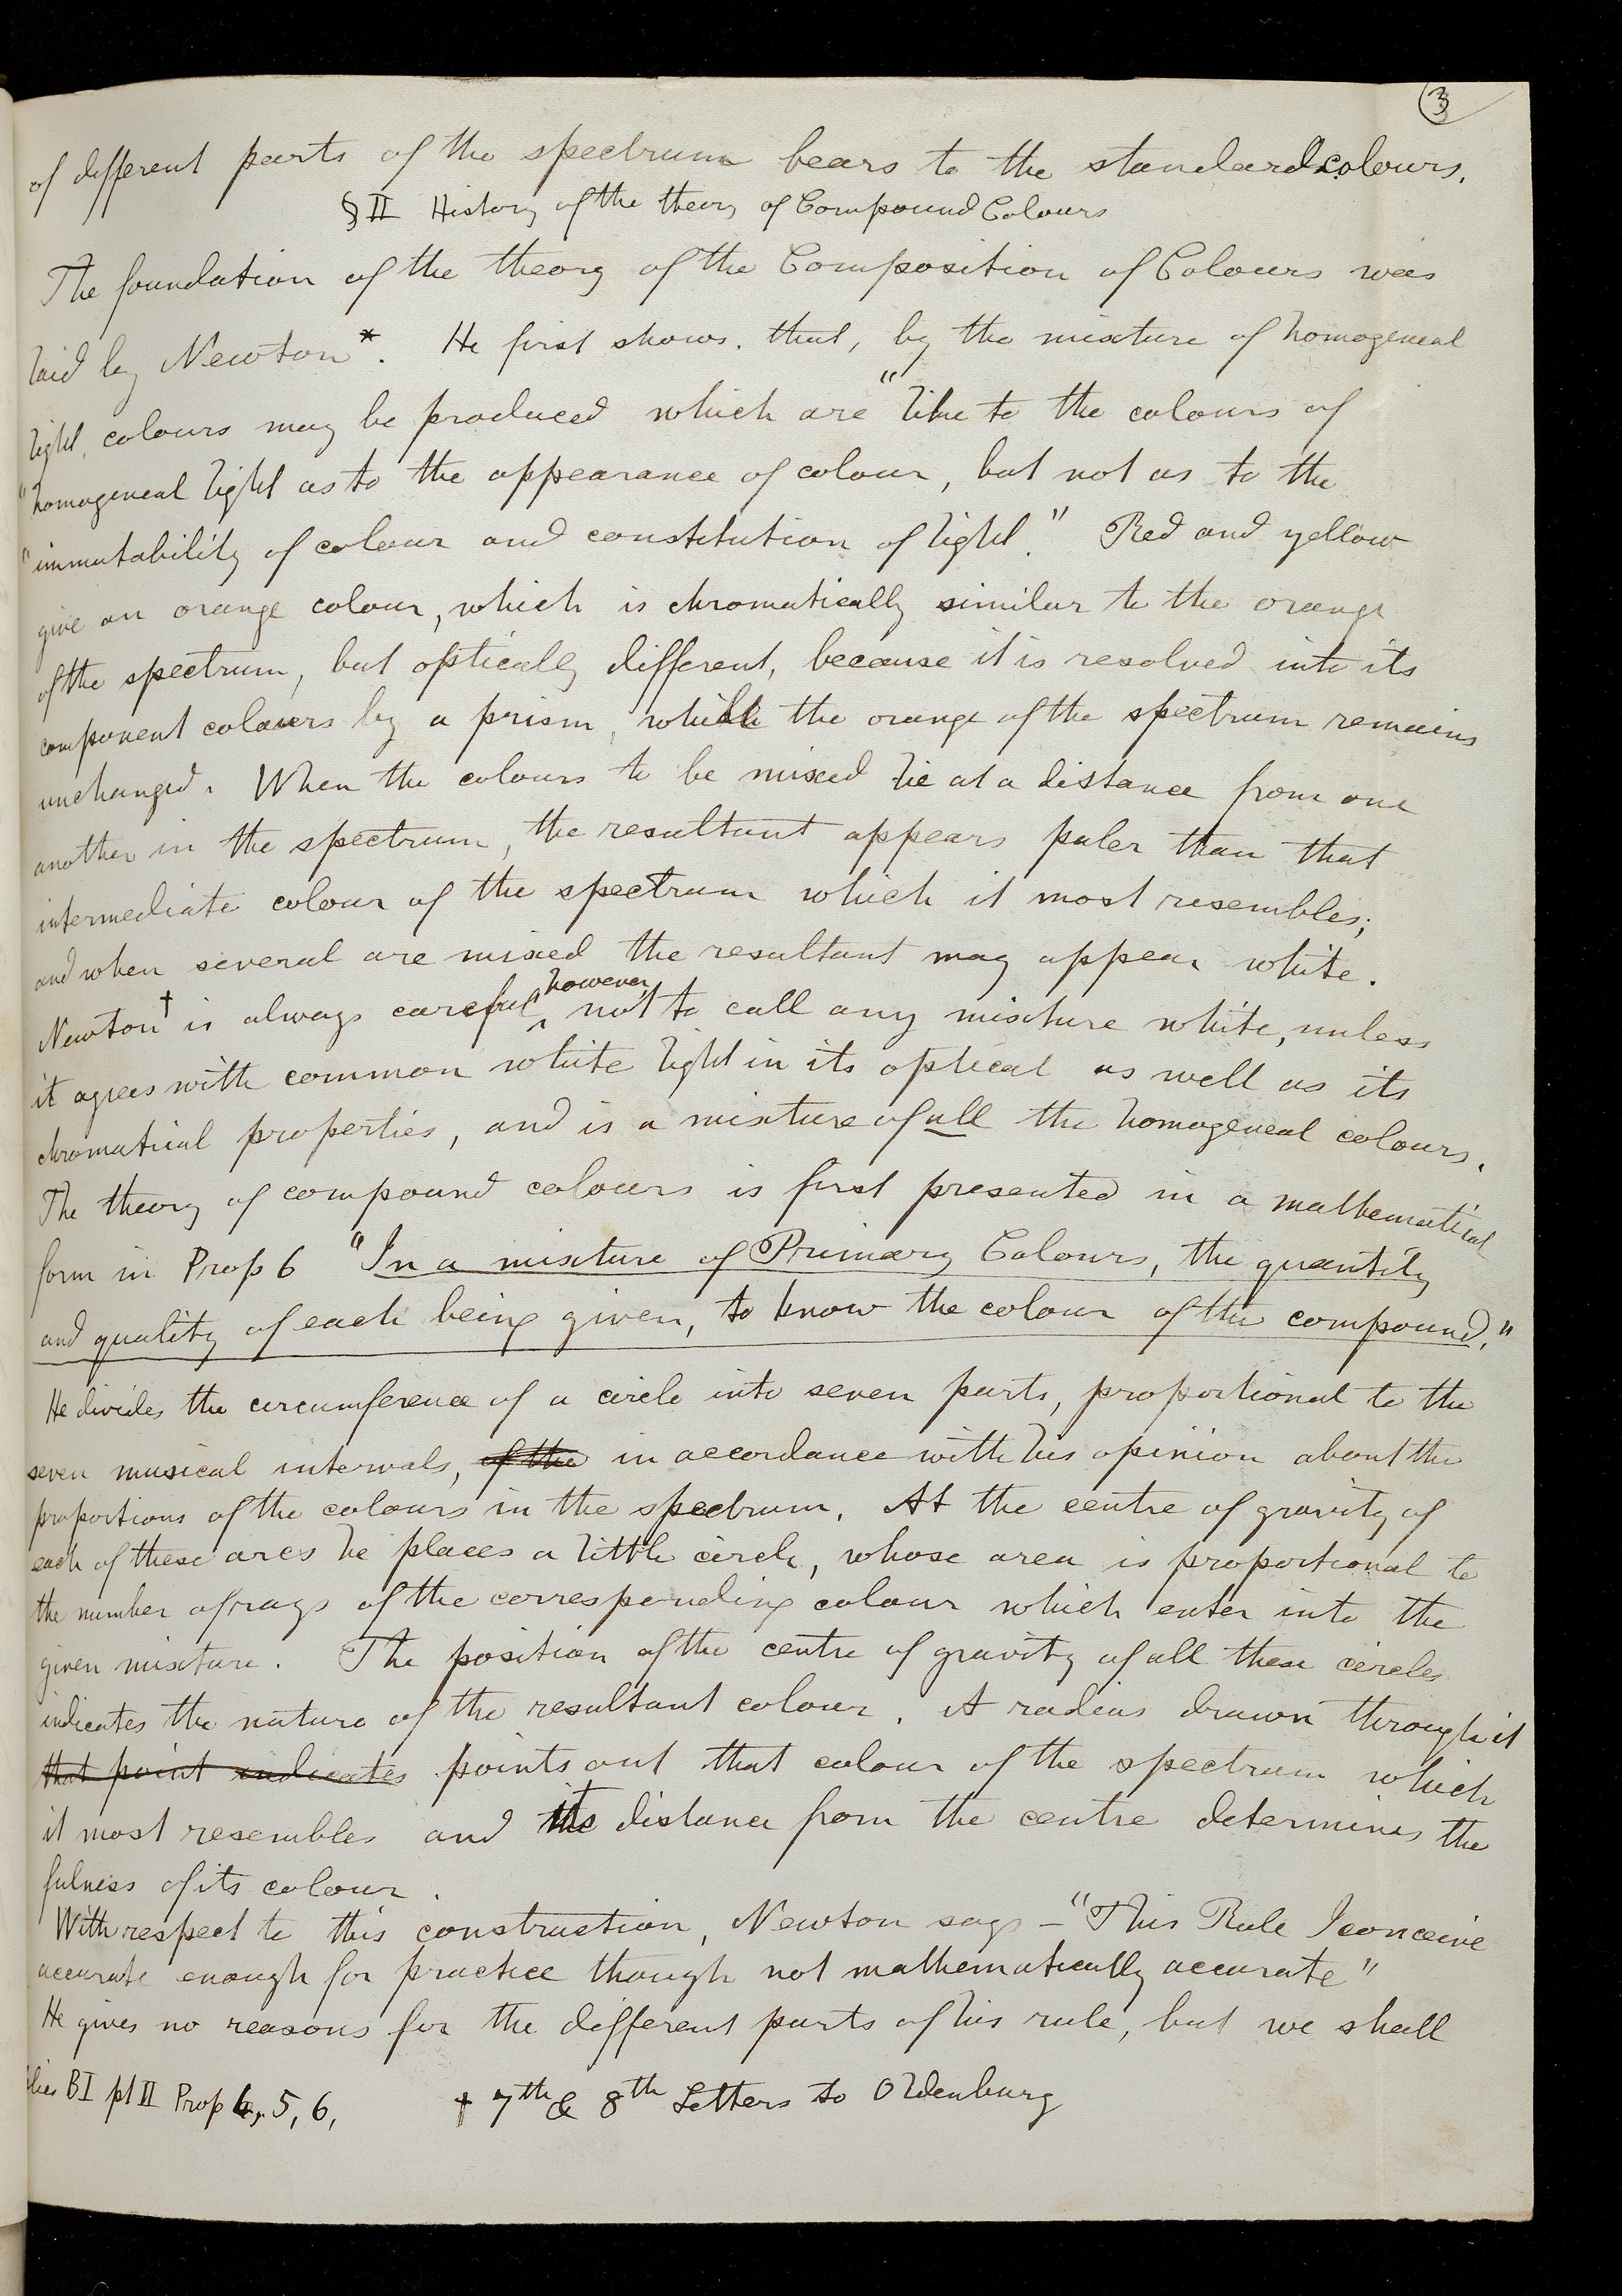 3
of different parts of the spectrum bears to the standard colours.
§ II History of the theory of Compound Colours
The foundation of the theory of the Composition of Colours was
laid by Newton*. He first shows. that, by the mixture of homogeneal
light, colours may be produced which are "like to the colours of
"homogeneal light as to the appearance of colour, but not as to the
"immutability of colour and constitution of light." Red and yellow
give an orange colour, which is chromatically similar to the orange
of the spectrum, but optically different, because it is resolved into its
component colours by a prism, while the orange of the spectrum remains
unchanged. When the colours to be mixed lie at a distance from one
another in the spectrum, the resultant appears paler than that
intermediate colour of the spectrum which it most resembles;
and when several are mixed the resultant may appear white.
Newton† is always careful, however, not to call any mixture white, unless
it agrees with common white light in its optical as well as its
chromatical properties, and is a mixture of all the homogeneal colours.
The theory of compound colours is first presented in a mathematical
form in Prop 6 "In a mixture of Primary Colours, the quantity
and quality of each being given, to know the colour of the compound."
He divides the circumference of a circle into seven parts, proportional to the
seven musical intervals, of the in accordance with his opinion about the
proportions of the colours in the spectrum. At the centre of gravity of
each of these arcs he places a little circle, whose area is proportional to
the number of rays of the corresponding colour which enter into the
given mixture. The position of the centre of gravity of all these circles
indicates the nature of the resultant colour. A radius drawn through it
that point indicates points out that colour of the spectrum which
it most resembles and its distance from the centre determines the
fulness of its colour.
With respect to this construction, Newton says – "This Rule I conceive
accurate enough for practice though not mathematically accurate"
He gives no reasons for the different parts of his rule, but we shall
BI pt II Prop 4, 5, 6, † 7th & 8th Letters to Oldenburg